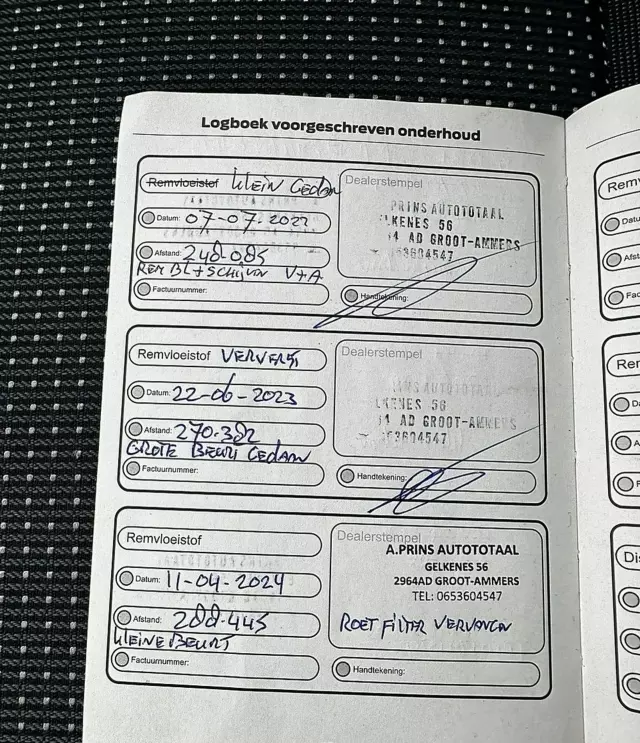 Logboek voorgeschreven onderhoud
Remvloeistof klein Gedan
Datum: 07-07-2022
Afstand: 248.085
REM BL + SCHIJVEN V+A
Factuurnummer:
Dealerstempel
PRINS AUTOTOTAAL
LKENES 56
4 AD GROOT-AMMERS
53604547
Handtekening:
Remvloeistof VERVERST
Datum: 22-06-2023
Afstand: 270.382
GROTE BEURT GEDAAN
Factuurnummer:
Dealerstempel
INS AUTOTOTAAL
LKENES 56
4 AD GROOT-AMMERS
53604547
Handtekening:
Remvloeistof
Datum: 11-04-2024
Afstand: 288.445
KLEINE BEURT
Factuurnummer:
Dealerstempel
A.PRINS AUTOTOTAAL
GELKENES 56
2964AD GROOT-AMMERS
TEL: 0653604547
ROET FILTER VERVANGEN
Handtekening:
Remv
Datu
Afst
Fac
Rer
Di